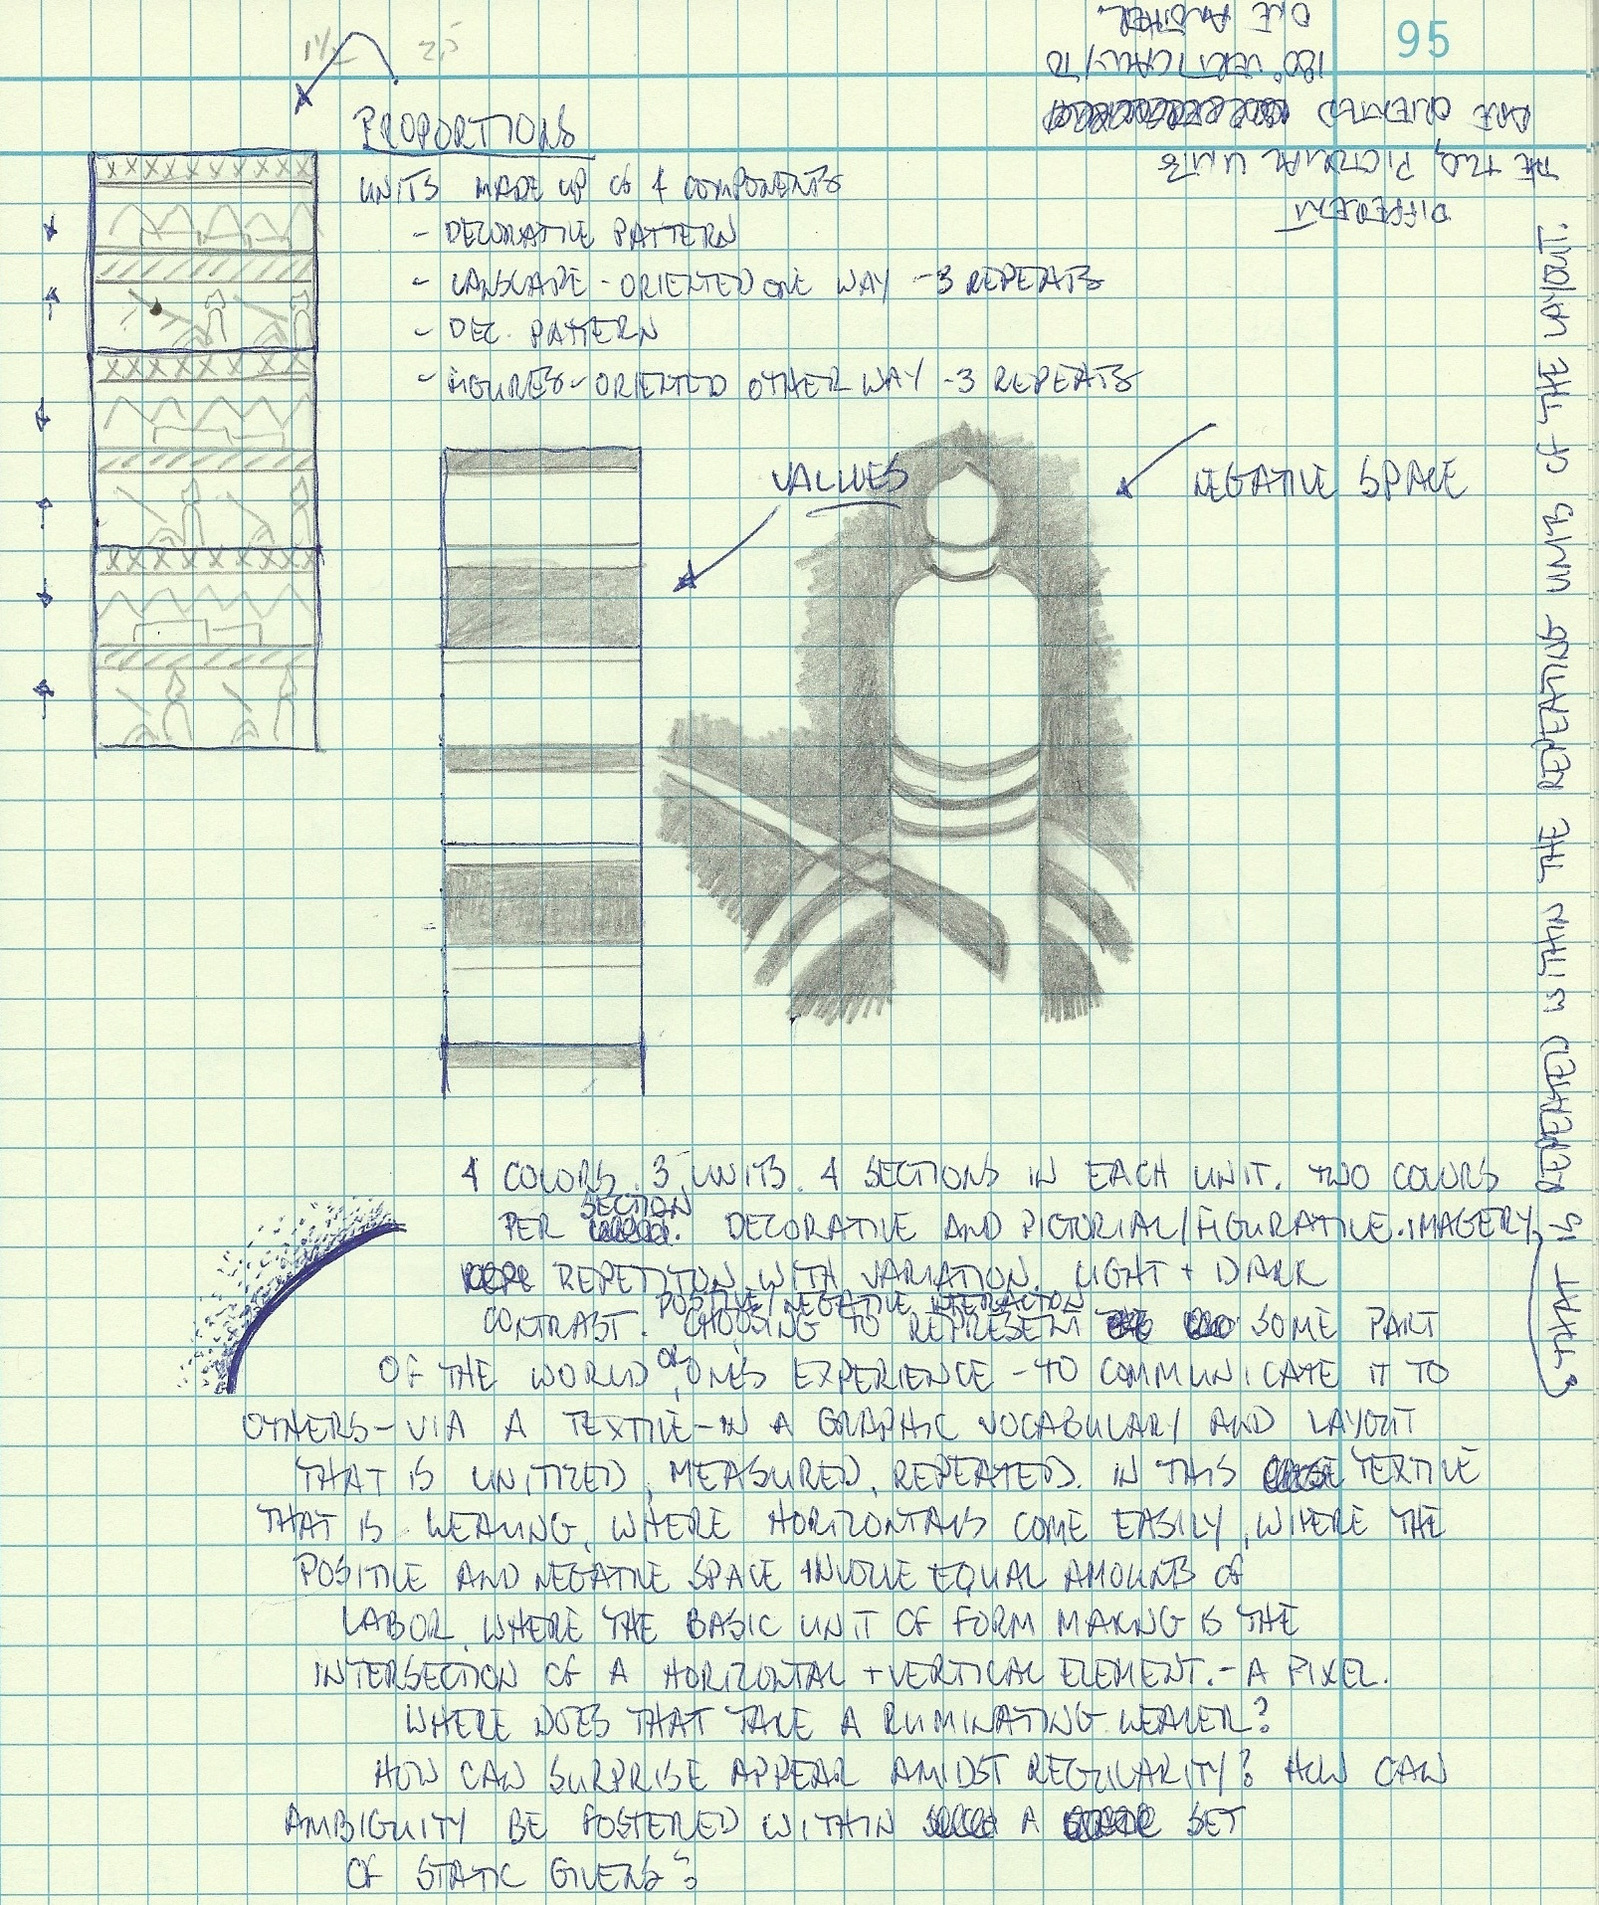 95
1 1/2 25
PROPORTIONS
UNITS MADE UP OF 4 COMPONENTS
- DECORATIVE PATTERN
- LANSCAPE - ORIENTED ONE WAY - 3 REPEATS
- DEC. PATTERN
- FIGURES - ORIENTED OTHER WAY - 3 REPEATS
VALUES
NEGATIVE SPACE
4 COLORS. 3 UNITS. 4 SECTIONS IN EACH UNIT. TWO COLORS
PER SECTION. DECORATIVE AND PICTORIAL/FIGURATIVE IMAGERY
REPETITON WITH VARIATION. LIGHT + DARK
CONTRAST. POSITIVE/NEGATIVE INTERACTION
CHOOSING TO REPRESENT SOME PART
OF THE WORLD OR ONE'S EXPERIENCE - TO COMMUNICATE IT TO
OTHERS - VIA A TEXTILE - IN A GRAPHIC VOCABULARY AND LAYOUT
THAT IS UNITIZED, MEASURED, REPEATED. IN THIS TEXTILE
THAT IS WEAVING, WHERE HORIZONTALS COME EASILY, WHERE THE
POSITIVE AND NEGATIVE SPACE INVOLVE EQUAL AMOUNTS OF
LABOR, WHERE THE BASIC UNIT OF FORM MAKING IS THE
INTERSECTION OF A HORIZONTAL + VERTICAL ELEMENT. - A PIXEL.
WHERE DOES THAT TAKE A RUMINATING WEAVER?
HOW CAN SURPRISE APPEAR AMIDST REGULARITY? HOW CAN
AMBIGUITY BE FOSTERED WITHIN A SET
OF STATIC GIVENS?
THAT IS GENERATED WITHIN THE REPEATING UNITS OF THE LAYOUT.
DIFFERENT
THE TWO, PICTORIAL UNITS
ARE ORIENTED
180° VERTICALLY TO
ONE ANOTHER.